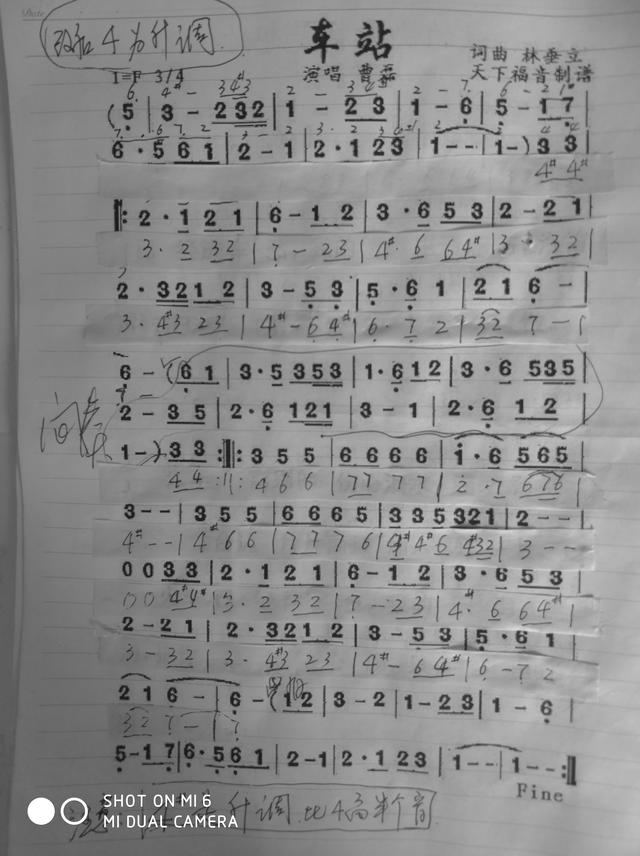 改后4为升调
车站
词曲 林垂立
1=F 3/4
演唱 曹磊
天下福音制谱
(5 | 3 - 232 | 1 - 23 | 1 - 6 | 5 - 17
6 · 561 | 2 - 1 | 2 · 123 | 1 - - | 1 -) 33 |
4# 4#
‖: 2 · 1 21 | 6 - 12 | 3 · 6 53 | 2 - 21 |
3 · 2 32 | 7 - 23 | 4# · 6 64# | 3 · 32 |
2 · 3212 | 3 - 53 | 5 · 61 | 216 - |
3 · 4#3 23 | 4# - 64# | 6 · 7 2 | 32 7 - |
6 - (61 | 3 · 5353 | 1 · 612 | 3 · 6 535 |
2 - 35 | 2 · 6 121 | 3 - 1 | 2 · 6 12 |
间奏
1 -) 33 :‖: 3 5 5 | 6 6 6 6 | 1 · 6 565 |
44 :‖: 4 6 6 | 77 7 7 | 2 · 7 676 |
3 - - | 3 5 5 | 6 6 6 5 | 335321 | 2 - - |
4# - - | 4# 6 6 | 7 7 7 6 | 4# 4# 6 4#32 | 3 - -
0 0 33 | 2 · 1 21 | 6 - 12 | 3 · 6 53 |
00 4#4# | 3 · 2 32 | 7 - 23 | 4# · 6 64# |
2 - 21 | 2 · 3212 | 3 - 53 | 5 · 61 |
3 - 32 | 3 · 4#3 23 | 4# - 64# | 6 - 7 2
216 - | 6 - 12 | 3 - 2 | 1 - 23 | 1 - 6 |
32 7 - | 7
5 - 17 | 6 · 561 | 2 - 1 | 2 · 1 23 | 1 - - | 1 - - :‖
Fine
升调 比4高半个音
SHOT ON MI 6
MI DUAL CAMERA